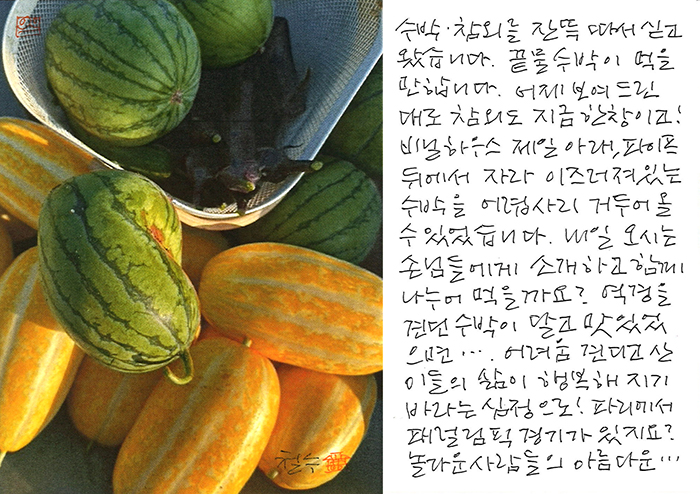 수박·참외를 잔뜩 따서 싣고
왔습니다. 끝물수박이 먹을
만합니다. 어제 보여드린
대로 참외도 지금 한창이고!
비닐하우스 제일 아래, 파이프
뒤에서 자라 이즈러져있는
수박을 어렵사리 거두어 올
수 있었습니다. 내일 오시는
손님들에게 소개하고 함께
나누어 먹을까요? 역경을
견딘 수박이 달고 맛있었
으면…. 어려움 견디고 산
이들의 삶이 행복해지기
바라는 심정으로! 파리에서
패럴림픽 경기가 있지요?
놀라운 사람들의 아름다운…
철수